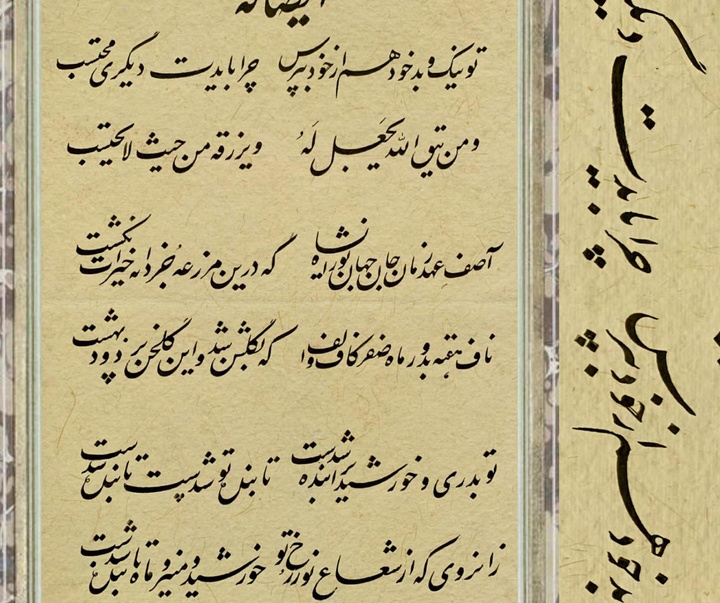 تو نیک و بد خود هم از خود بپرس چرا بایدت دیگری محتسب
ومن یتق الله یجعل لَهُ ویرزقه من حیث لا یحتسب
آصف عهد زمان جان جهان تورانشاه که درین مزرعه جز دانه خیرات نکشت
ناف هفته بد و ز ماه صفر کاف و الف که بگلشن شد و این گلخن پر دود بهشت
تو بدری و خورشید ترا بنده شدست تا بنده تو شدست تابنده شدست
زانروی که از شعاع نور رخ تو خورشید منیر و ماه تابنده شدست
بد خود هم از خود بپرس چرا بایدت